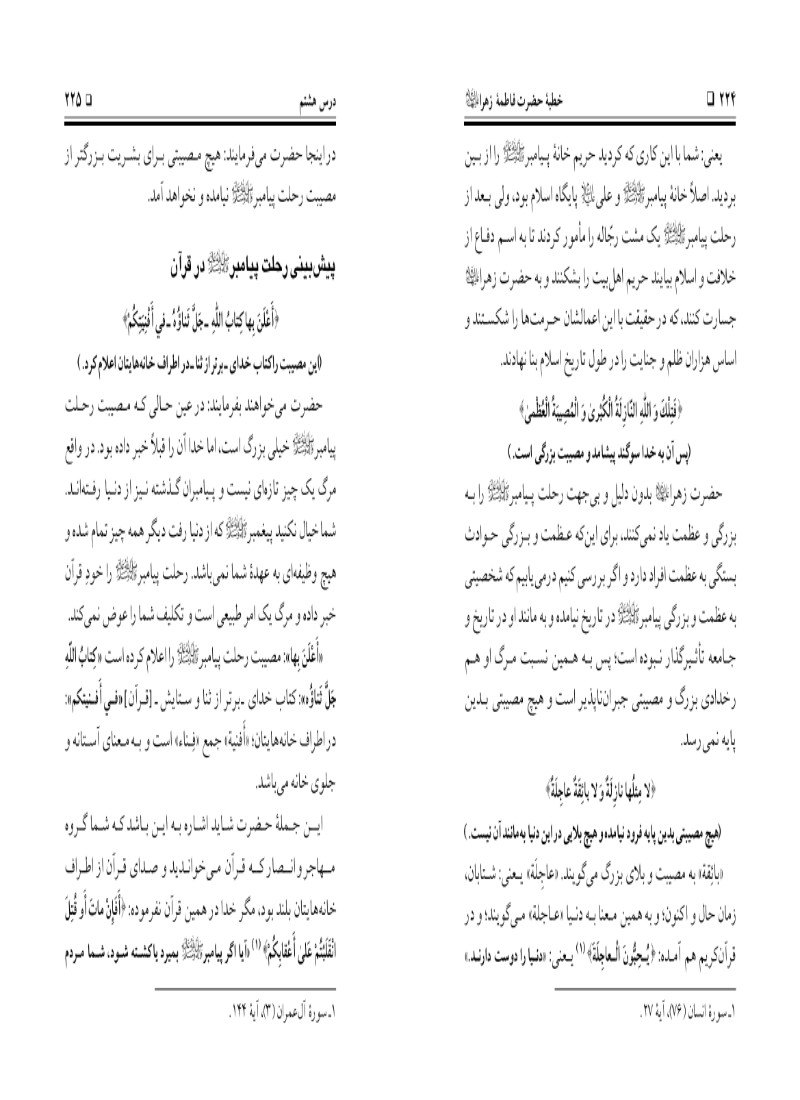 ۲۲۴ ❑ خطبهٔ حضرت فاطمهٔ زهرا
یعنی: شما با این کاری که کردید حریم خانهٔ پیامبرﷺ را از بین
بردید. اصلاً خانهٔ پیامبرﷺ و علی پایگاه اسلام بود، ولی بعد از
رحلت پیامبرﷺ یک مشت رجّاله را مأمور کردند تا به اسم دفاع از
خلافت و اسلام بیایند حریم اهل‌بیت را بشکنند و به حضرت زهرا
جسارت کنند، که در حقیقت با این اعمالشان حرمت‌ها را شکستند و
اساس هزاران ظلم و جنایت را در طول تاریخ اسلام بنا نهادند.
﴿فَتِلْكَ وَ اللهِ النّازِلَةُ الْكُبْرىٰ وَ الْمُصِيبَةُ الْعُظْمىٰ﴾
(پس آن به خدا سوگند پیشامد و مصیبت بزرگی است.)
حضرت زهرا بدون دلیل و بی‌جهت رحلت پیامبرﷺ را به
بزرگی و عظمت یاد نمی‌کنند، برای این‌که عظمت و بزرگی حوادث
بستگی به عظمت افراد دارد و اگر بررسی کنیم درمی‌یابیم که شخصیتی
به عظمت و بزرگی پیامبرﷺ در تاریخ نیامده و به مانند او در تاریخ و
جامعه تأثیرگذار نبوده است؛ پس به همین نسبت مرگ او هم
رخدادی بزرگ و مصیبتی جبران‌ناپذیر است و هیچ مصیبتی بدین
پایه نمی‌رسد.
﴿لا مِثلُها نازِلَةٌ وَ لا بائِقَةٌ عاجِلَةٌ﴾
(هیچ مصیبتی بدین پایه فرود نیامده و هیچ بلایی در این دنیا به‌مانند آن نیست.)
«بائِقة» به مصیبت و بلای بزرگ می‌گویند. «عاجِلَة» یعنی: شتابان،
زمان حال و اکنون؛ و به همین معنا به دنیا «عاجلة» می‌گویند؛ و در
قرآن‌کریم هم آمده: ﴿یُحِبُّونَ الْعاجِلَةَ﴾ (۱) یعنی: «دنیا را دوست دارند.»
۱ـ سورهٔ انسان (۷۶)، آیهٔ ۲۷.
درس هشتم ❑ ۲۲۵
در اینجا حضرت می‌فرمایند: هیچ مصیبتی برای بشریت بزرگتر از
مصیبت رحلت پیامبرﷺ نیامده و نخواهد آمد.
پیش‌بینی رحلت پیامبرﷺ در قرآن
﴿أَعْلَنَ بِها كِتابُ اللهِ ـ جَلَّ ثَناؤُهُ ـ في أَفْنِيَتِكُمْ﴾
(این مصیبت را کتاب خدای ـ برتر از ثنا ـ در اطراف خانه‌هایتان اعلام کرد.)
حضرت می‌خواهند بفرمایند: در عین حالی که مصیبت رحلت
پیامبرﷺ خیلی بزرگ است، اما خدا آن را قبلاً خبر داده بود. در واقع
مرگ یک چیز تازه‌ای نیست و پیامبران گذشته نیز از دنیا رفته‌اند.
شما خیال نکنید پیغمبرﷺ که از دنیا رفت دیگر همه چیز تمام شده و
هیچ وظیفه‌ای به عهدهٔ شما نمی‌باشد. رحلت پیامبرﷺ را خودِ قرآن
خبر داده و مرگ یک امر طبیعی است و تکلیف شما را عوض نمی‌کند.
«أَعْلَنَ بِها»: مصیبت رحلت پیامبرﷺ را اعلام کرده است «كِتابُ اللّٰهِ
جَلَّ ثَناؤُه»: کتاب خدای ـ برتر از ثنا و ستایش ـ [قرآن] «في أفنيتكم»:
در اطراف خانه‌هایتان؛ «أفنية» جمع «فِناء» است و به معنای آستانه و
جلوی خانه می‌باشد.
این جملهٔ حضرت شاید اشاره به این باشد که شما گروه
مهاجر و انصار که قرآن می‌خواندید و صدای قرآن از اطراف
خانه‌هایتان بلند بود، مگر خدا در همین قرآن نفرموده: ﴿أَفَإِنْ ماتَ أَو قُتِلَ
انْقَلَبْتُمْ عَلى أَعْقابِكُمْ﴾ (۱) «آیا اگر پیامبرﷺ بمیرد یا کشته شود، شما مردم
۱ـ سورهٔ آل‌عمران (۳)، آیهٔ ۱۴۴.